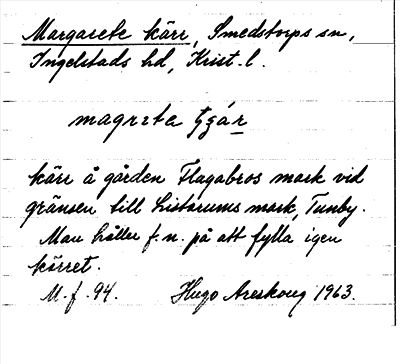 Margarete kärr, Smedstorps sn,
Ingelstads hd, Krist. l.
magreta
kärr å gården Flagabros mark vid
gränsen till Listarums mark, Tunby.
Man håller f.n. på att fylla igen
kärret.
M. f. 94. Hugo Areskoug 1963.